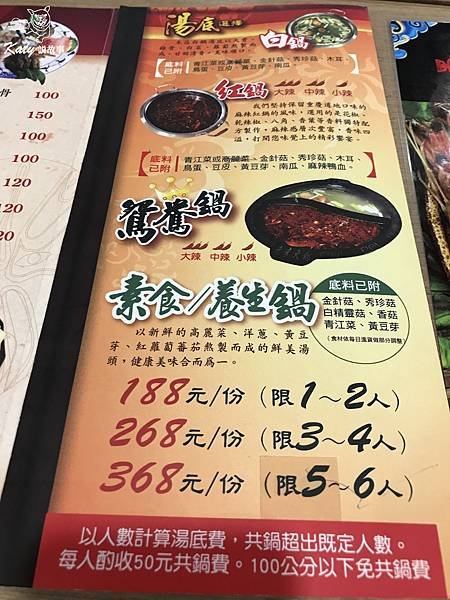 Katy 說故事
骨 100
150
100
120
120
湯底選擇
白鍋
底料已附
青江菜或高麗菜、金針菇、秀珍菇、木耳、
鳥蛋、豆皮、黃豆芽、南瓜。
紅鍋
大辣 中辣 小辣
我們堅持保留重慶道地口味的
麻辣紅鍋的風味，選用的是花椒、
乾辣椒、八角、香葉等香料獨特配
方製作，麻辣感層次豐富，香味四
溢，打開您味覺上的精彩饗宴。
底料已附
青江菜或高麗菜、金針菇、秀珍菇、木耳、
鳥蛋、豆皮、黃豆芽、南瓜、麻辣鴨血。
鴛鴦鍋
大辣 中辣 小辣
素食/養生鍋
底料已附
金針菇、秀珍菇
白精靈菇、香菇
青江菜、黃豆芽
（食材依每日進貨做部分調整）
以新鮮的高麗菜、洋蔥、黃豆
芽、紅蘿蔔蕃茄熬製而成的鮮美湯
頭，健康美味合而為一。
188元/份（限1～2人）
268元/份（限3～4人）
368元/份（限5～6人）
以人數計算湯底費，共鍋超出既定人數。
每人酌收50元共鍋費。100公分以下免共鍋費